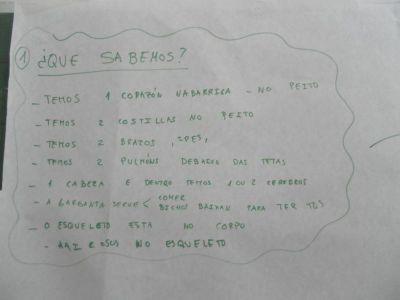 1 ¿QUE SABEMOS?
- TEMOS 1 CORAZÓN NA BARRIGA - NO PEITO
- TEMOS 2 COSTILLAS NO PEITO
- TEMOS 2 BRAZOS, 2 PES,
- TEMOS 2 PULMÓNS DEBAIXO DAS TETAS
- 1 CABEZA E DENTRO TEMOS 1 OU 2 CEREBROS
- A GARGANTA SERVE < COMER
BICHOS BAIXAN PARA TER TOS
- O ESQUELETO ESTA NO CORPO
- HAI 2 OSOS NO ESQUELETO